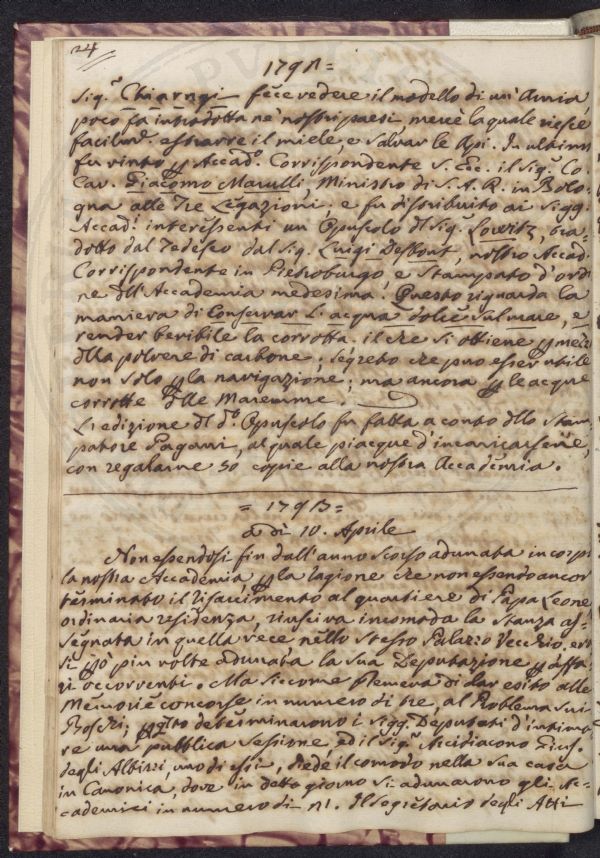 24
1791=
Sig.r Chiarugi fece vedere il modello di un'Arnia,
poco fa introdotta ne' nostri paesi, mercè la quale riesce
facilm.e estrarre il miele, e salvar le Api. In ultimo
fu vinto p Accad.o Corrispondente S. Ecc. il Sig.r Co:
Cav. Giacomo Marulli, Ministro di S. A. R. in Bolo-
gna alle Tre Legazioni, e fu distribuito ai Sigg.
Accad.i interessenti un Opuscolo del Sig.r Lowitz, tra-
dotto dal Tedesco dal Sig. Luigi Desfout, nostro Accad.
Corrispondente in Pietroburgo, e stampato d'ordi
ne dell'Accademia medesima. Questo riguarda la
maniera di Conservar L'acqua dolce sul mare, e
render bevibile la corrotta. il che si ottiene p mezo
della polvere di carbone; segreto che può esser utile
non solo p la navigazione; ma ancora p le acque
corrotte delle Maremme.
L'edizione del d.o Opuscolo fu fatta a conto dello Stam-
patore Pagani, al quale piacque d'incaricarsene,
con regalarne 50 copie alla nostra Accademia.
=1791=
a dì 10. Aprile
Non essendosi fin dall'anno scorso adunata in corpo
la nostra Accademia, p la ragione che non essendo ancor
terminato il risarcimento al quartiere di Papa Leone
ordinaria residenza, riusciva incomoda la Stanza as-
segnata in quella vece nello stesso Palazzo Vecchio, era
si però più volte adunata la sua Deputazione p affa-
ri occorrenti. Ma siccome premeva di dar esito alle
Memorie concorse in numero di tre, al Problema sui
Boschi; determinarono i Sigg. Deputati d'intima-
re una pubblica sessione, ed il Sig.r Arcidiacono
degli Albizzi, uno di essi, diede il comodo nella sua casa
in Canonica, dove in detto giorno si adunarono gli Ac-
cademici in numero di 11. Il Segretario degli Atti